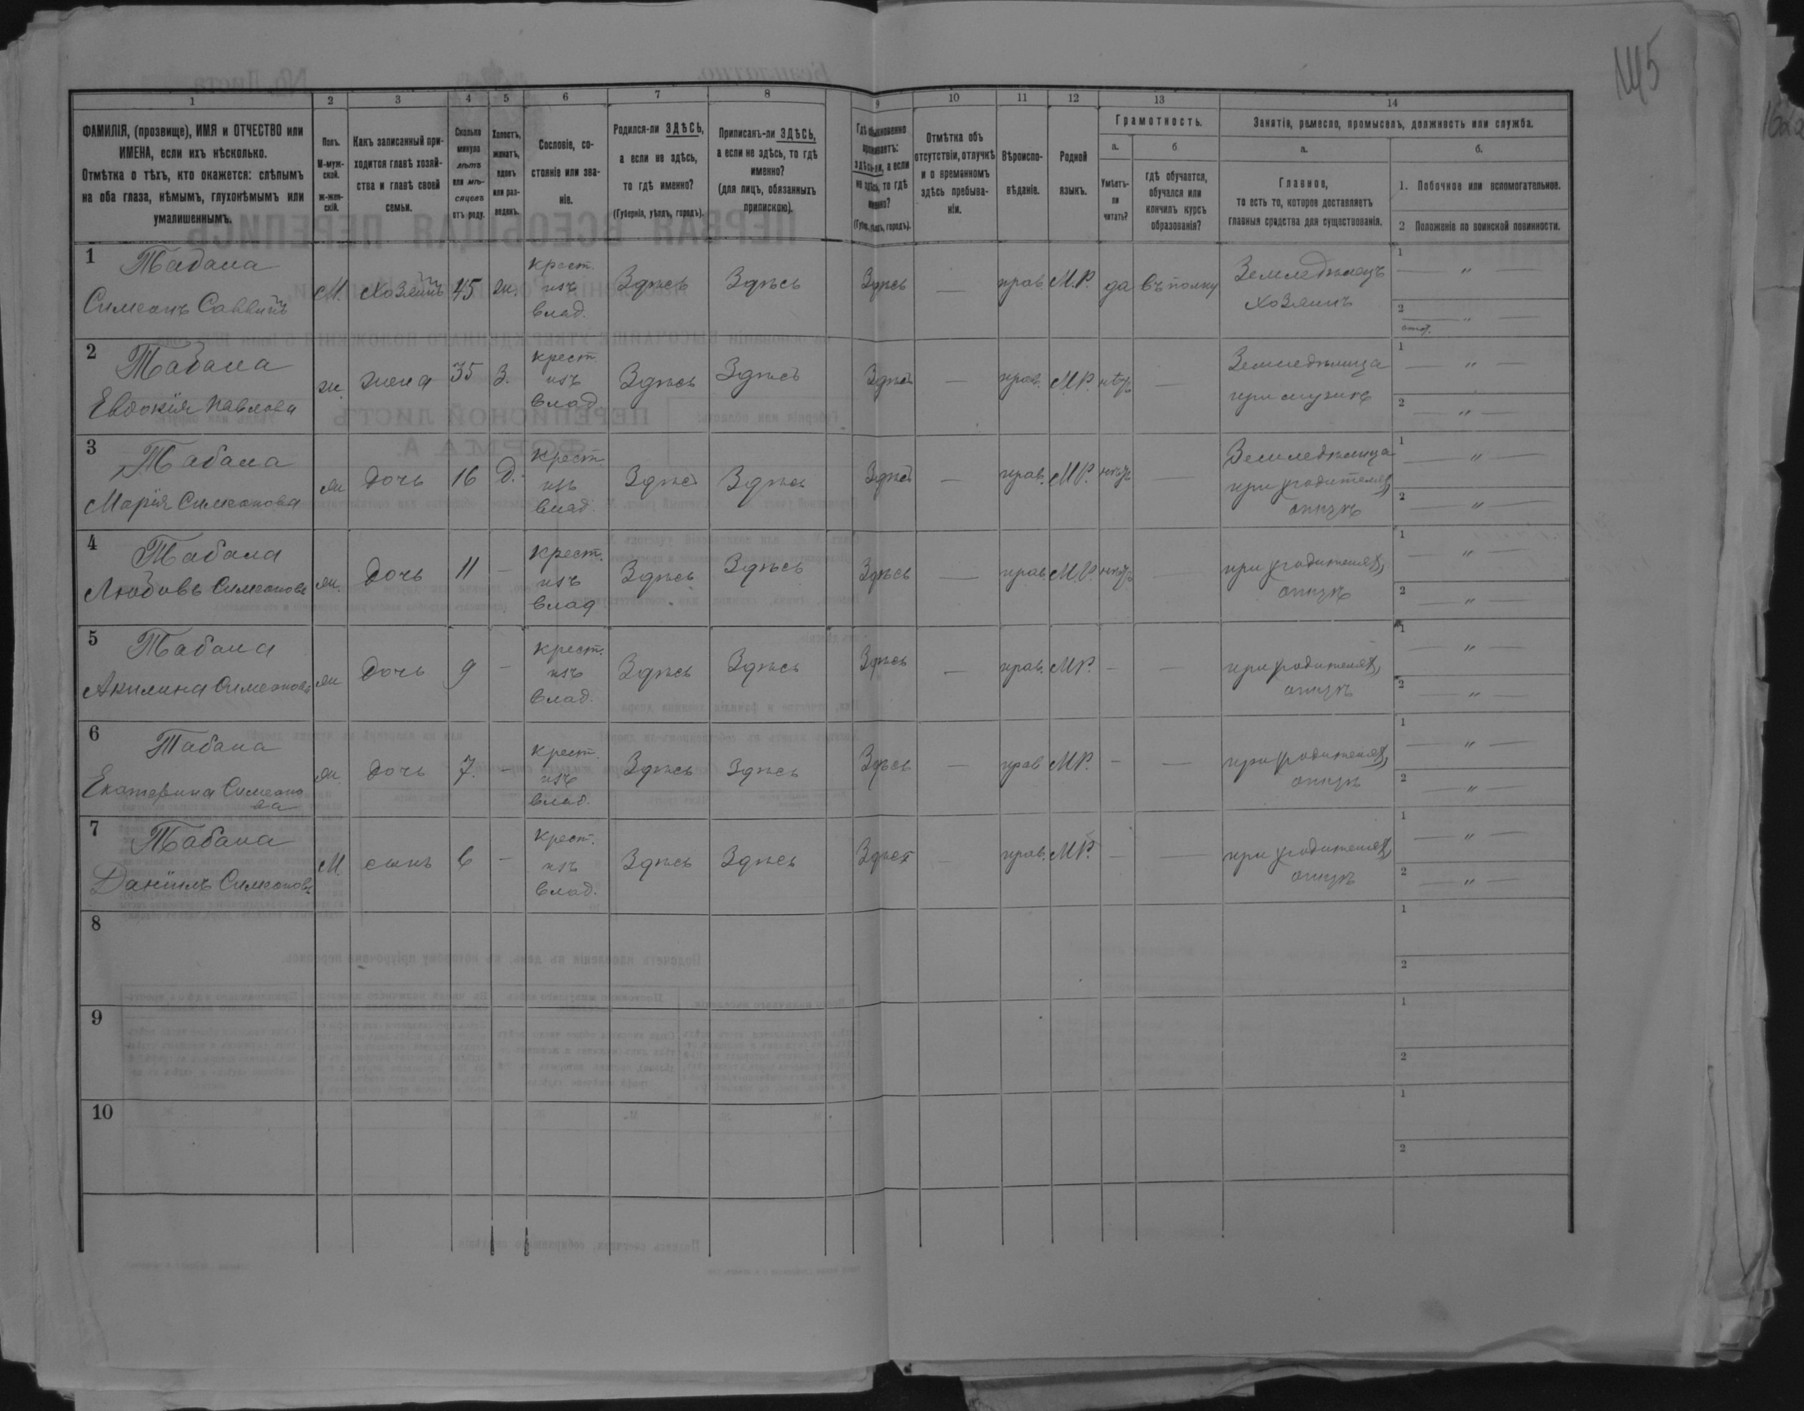 1145
1 2 3 4 5 6 7 8 9 10 11 12 13 14
ФАМИЛІЯ, (прозвище), ИМЯ и ОТЧЕСТВО или
ИМЕНА, если ихъ нѣсколько.
Отмѣтка о тѣхъ, кто окажется: слѣпымъ
на оба глаза, нѣмымъ, глухонѣмымъ или
умалишеннымъ.
Полъ.
М-муж-
ской.
ж-жен-
скій.
Какъ записанный при-
ходится главѣ хозяй-
ства и главѣ своей
семьи.
Сколько
минуло
лѣтъ
или мѣ-
сяцевъ
отъ роду.
Холостъ,
женатъ,
вдовъ
или раз-
веденъ.
Сословіе, со-
стояніе или зва-
ніе.
Родился-ли ЗДѢСЬ,
а если не здѣсь,
то гдѣ именно?
(Губернія, уѣздъ, городъ).
Приписанъ-ли ЗДѢСЬ,
а если не здѣсь, то гдѣ
именно?
(для лицъ, обязанныхъ
припискою).
Гдѣ обыкновенно
проживаетъ:
здѣсь-ли, а если
не здѣсь, то гдѣ
именно?
(Губ., уѣздъ, городъ).
Отмѣтка объ
отсутствіи, отлучкѣ
и о временномъ
здѣсь пребыва-
ніи.
Вѣроиспо-
вѣданіе.
Родной
языкъ.
Грамотность.
а.
Умѣетъ-
ли
читать?
б
гдѣ обучается,
обучался или
кончилъ курсъ
образованія?
Занятія, ремесло, промыселъ, должность или служба.
а.
Главное,
то есть то, которое доставляетъ
главныя средства для существованія.
б.
1. Побочное или вспомогательное.
2 Положеніе по воинской повинности.
1 Табала
Симеонъ Саввинъ
М. Хозяинъ 45 ж. крест. изъ влад. Здѣсь Здѣсь Здѣсь — прав М.Р. да въ полку Земледѣлецъ хозяинъ
1 — " —
2 — " —
2 Табала
Евдокія Павлова
ж. жена 35 З. крест. изъ влад Здѣсь Здѣсь Здѣсь — прав. М.Р. нѣтъ — Земледѣлица при мужѣ
1 — " —
2 — " —
3 Табала
Марія Симеонова
ж дочь 16 д. крест. изъ влад. Здѣсь Здѣсь Здѣсь — прав. М.Р. нѣтъ — Земледѣлица при родителяхъ, отцѣ
1 — " —
2 — " —
4 Табала
Любовь Симеонова
ж. дочь 11 — крест. изъ влад Здѣсь Здѣсь Здѣсь — прав М.Р. нѣтъ — при родителяхъ, отцѣ
1 — " —
2 — " —
5 Табала
Акилина Симеонова
ж дочь 9 — крест. изъ влад. Здѣсь Здѣсь Здѣсь — прав. М.Р. — — при родителяхъ, отцѣ
1 — " —
2 — " —
6 Табала
Екатерина Симеоно
ва
ж дочь 7. — крест. изъ влад. Здѣсь Здѣсь Здѣсь — прав М.Р. — — при родителяхъ, отцѣ
1 — " —
2 — " —
7 Табала
Даніилъ Симеонов
М сынъ 6 — крест. изъ влад. Здѣсь Здѣсь Здѣсь — прав. М.Р. — — при родителяхъ, отцѣ
1 — " —
2 — " —
8
1
2
9
1
2
10
1
2